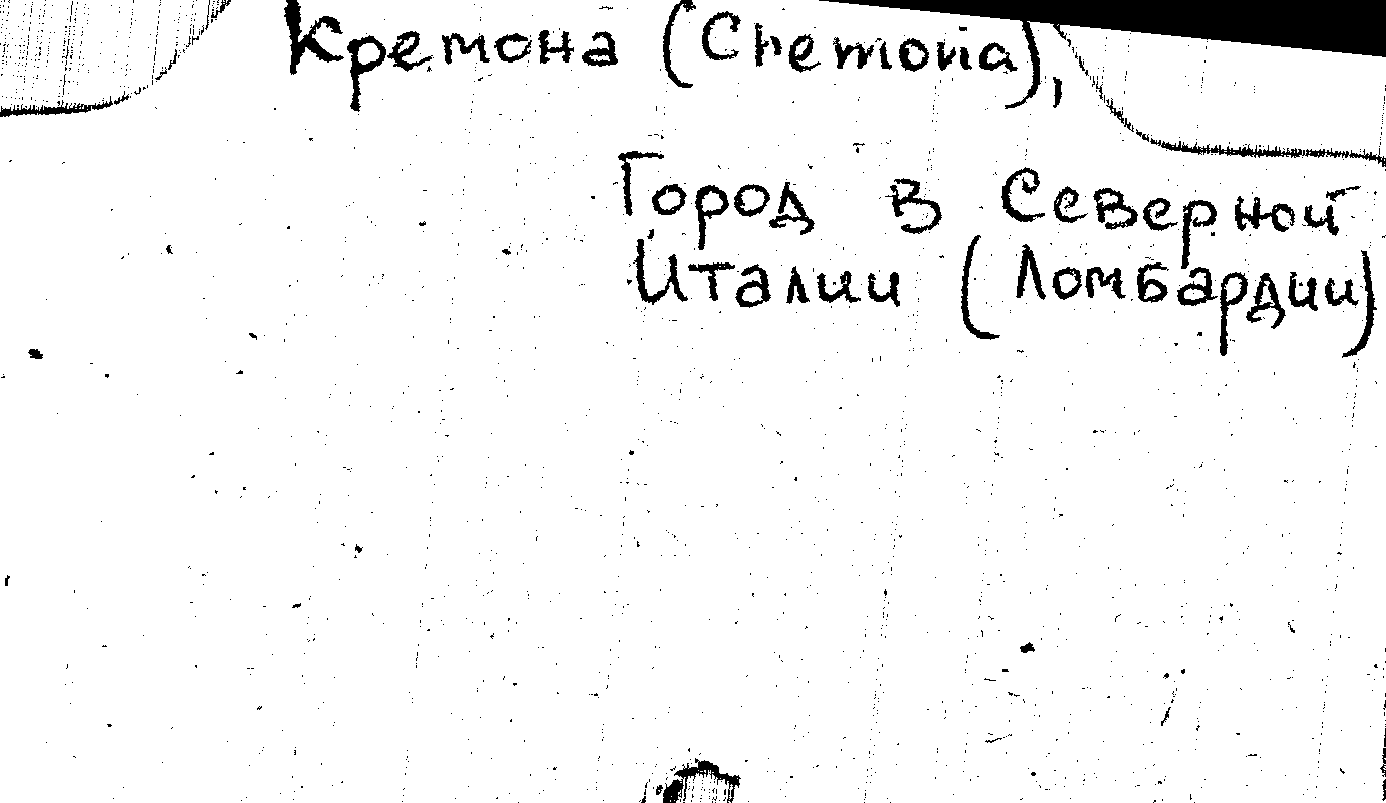 Кремона (Cremona),
Город в Северной
Италии (Ломбардии)